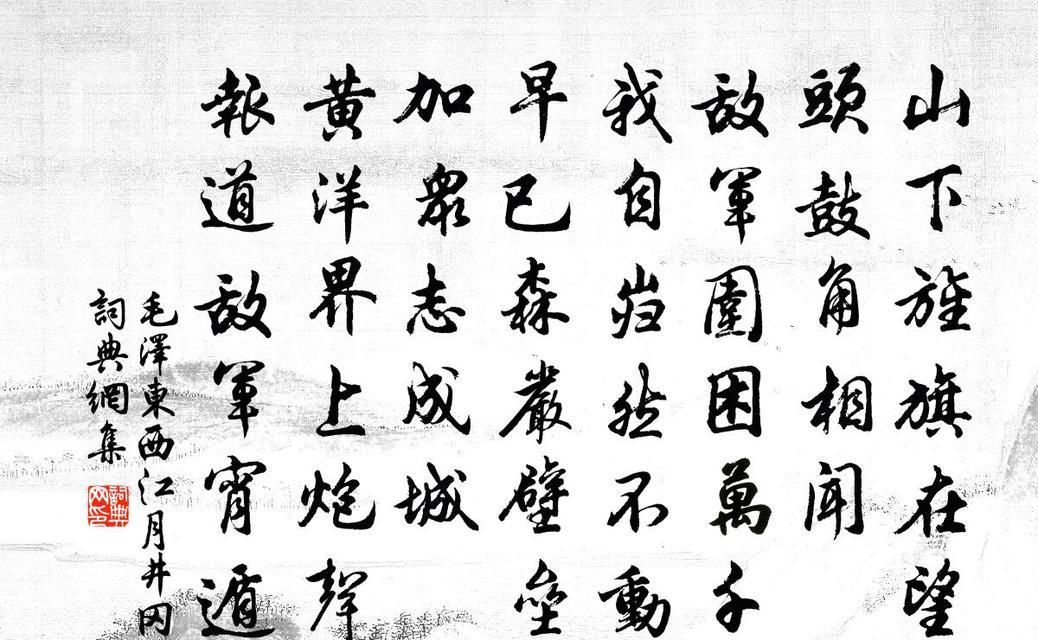 山下旌旗在望
頭鼓角相聞
敌軍圍困萬千
我自岿然不動
早已森嚴壁垒
加眾志成城
黄洋界上炮聲
報道敌軍宵遁
毛澤東西江月井冈
詞典網集
詞典网印